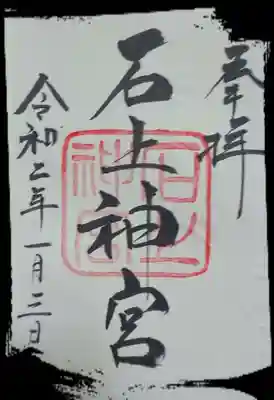 奉拝
石上神宮
令和二年一月三日
石上神宮